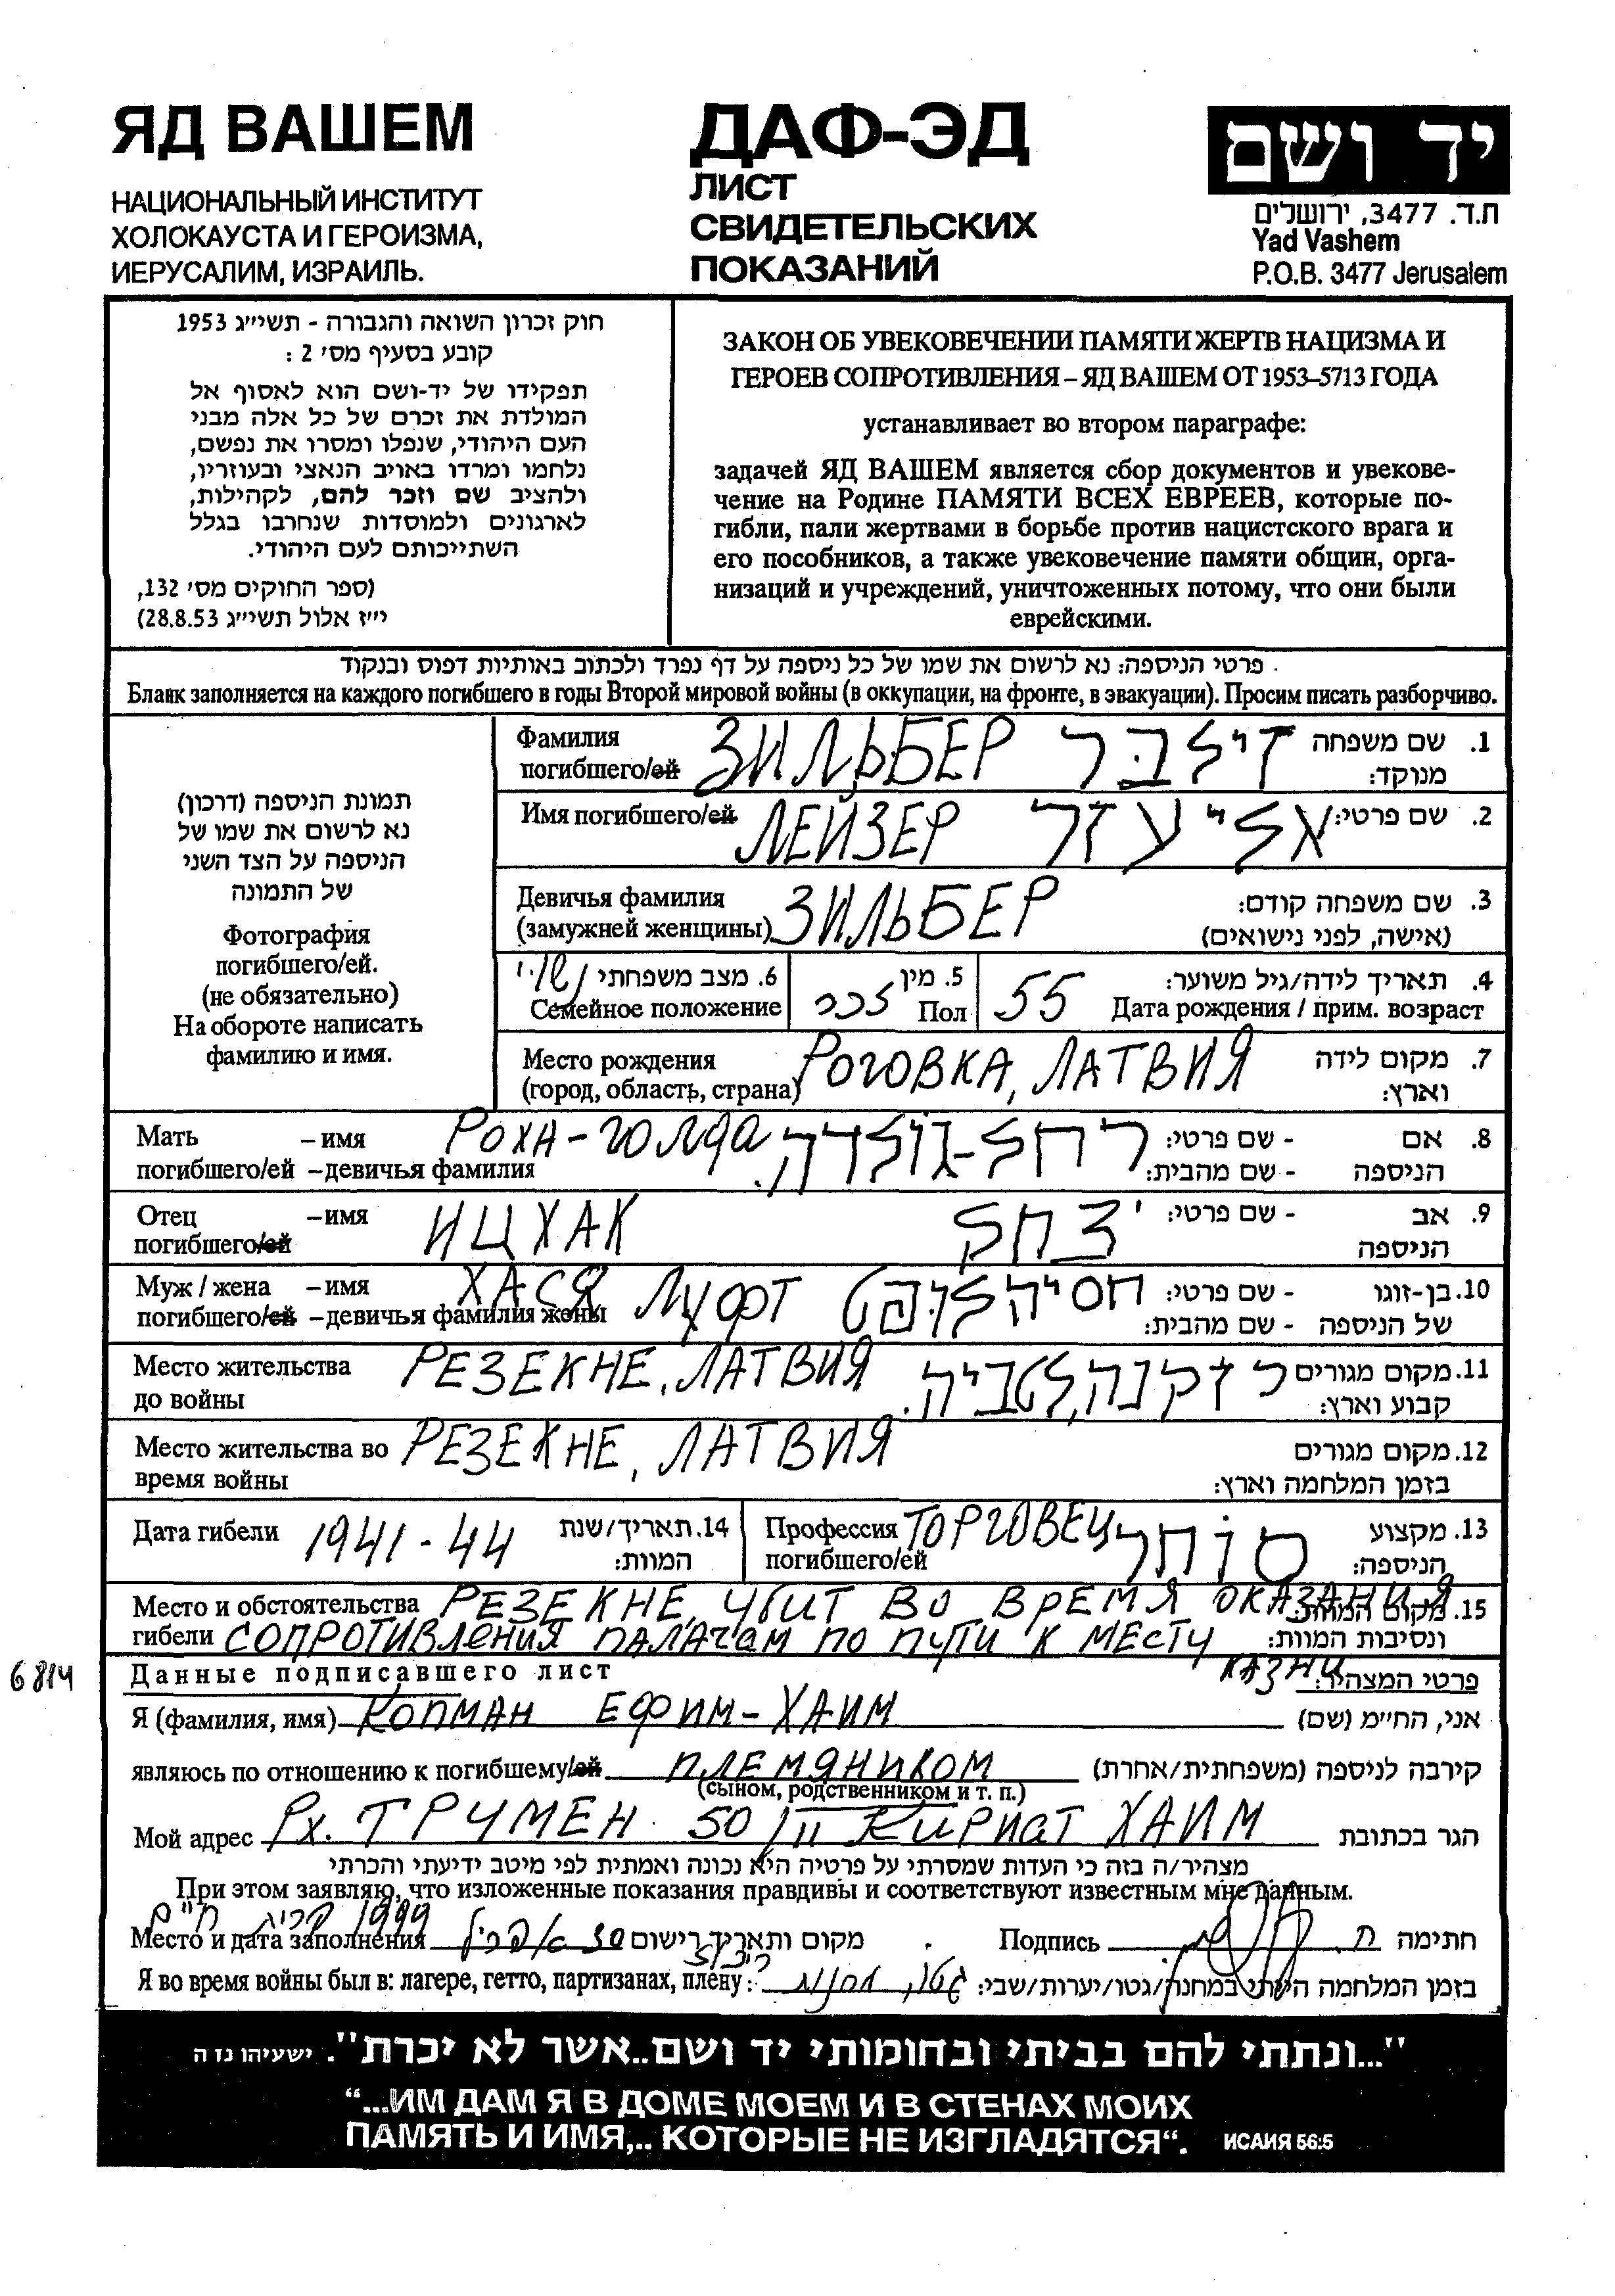 ЯД ВАШЕМ
НАЦИОНАЛЬНЫЙ ИНСТИТУТ
ХОЛОКАУСТА И ГЕРОИЗМА,
ИЕРУСАЛИМ, ИЗРАИЛЬ.
ДАФ-ЭД
ЛИСТ
СВИДЕТЕЛЬСКИХ
ПОКАЗАНИЙ
יד ושם
ת.ד. 3477, ירושלים
Yad Vashem
P.O.B. 3477 Jerusalem
חוק זכרון השואה והגבורה - תשי״ג 1953
קובע בסעיף מס׳ 2 :
תפקידו של יד-ושם הוא לאסוף אל
המולדת את זכרם של כל אלה מבני
העם היהודי, שנפלו ומסרו את נפשם,
נלחמו ומרדו באויב הנאצי ובעוזריו,
ולהציב שם וזכר להם, לקהילות,
לארגונים ולמוסדות שנחרבו בגלל
השתייכותם לעם היהודי.
(ספר החוקים מס׳ 132,
י״ז אלול תשי״ג 28.8.53)
ЗАКОН ОБ УВЕКОВЕЧЕНИИ ПАМЯТИ ЖЕРТВ НАЦИЗМА И
ГЕРОЕВ СОПРОТИВЛЕНИЯ – ЯД ВАШЕМ ОТ 1953–5713 ГОДА
устанавливает во втором параграфе:
задачей ЯД ВАШЕМ является сбор документов и увекове-
чение на Родине ПАМЯТИ ВСЕХ ЕВРЕЕВ, которые по-
гибли, пали жертвами в борьбе против нацистского врага и
его пособников, а также увековечение памяти общин, орга-
низаций и учреждений, уничтоженных потому, что они были
еврейскими.
פרטי הניספה: נא לרשום את שמו של כל ניספה על דף נפרד ולכתוב באותיות דפוס ובנקוד
Бланк заполняется на каждого погибшего в годы Второй мировой войны (в оккупации, на фронте, в эвакуации). Просим писать разборчиво.
תמונת הניספה (דרכון)
נא לרשום את שמו של
הניספה על הצד השני
של התמונה
Фотография
погибшего/ей.
(не обязательно)
На обороте написать
фамилию и имя.
Фамилия ЗИЛЬБЕР זילבר 1. שם משפחה
погибшего/ей מנוקד:
Имя погибшего/ей ЛЕЙЗЕР אליעזר 2. שם פרטי:
Девичья фамилия ЗИЛЬБЕР 3. שם משפחה קודם:
(замужней женщины) (אישה, לפני נישואים)
6. מצב משפחתי נשוי 5. מין זכר 55 4. תאריך לידה/גיל משוער:
Семейное положение Пол Дата рождения / прим. возраст
Место рождения РОГОВКА, ЛАТВИЯ 7. מקום לידה
(город, область, страна) וארץ:
Мать – имя РОХА-ГОЛДА רחל-גולדה. - שם פרטי: 8. אם
погибшего/ей – девичья фамилия - שם מהבית: הניספה
Отец – имя ИЦХАК יצחק - שם פרטי: 9. אב
погибшего/ей הניספה
Муж / жена – имя ХАСЯ ЛУФТ חסיה לופט - שם פרטי: 10. בן-זוגו
погибшего/ей – девичья фамилия жены - שם מהבית: של הניספה
Место жительства РЕЗЕКНЕ, ЛАТВИЯ רזקנה, לטביה. 11. מקום מגורים
до войны קבוע וארץ:
Место жительства во РЕЗЕКНЕ, ЛАТВИЯ 12. מקום מגורים
время войны בזמן המלחמה וארץ:
Дата гибели 1941-44 14. תאריך/שנת
המוות:
Профессия ТОРГОВЕЦ סוחר 13. מקצוע
погибшего/ей הניספה:
Место и обстоятельства РЕЗЕКНЕ, УБИТ ВО ВРЕМЯ ОКАЗАНИЯ 15. מקום המוות
гибели СОПРОТИВЛЕНИЯ ПАЛАЧАМ ПО ПУТИ К МЕСТУ ונסיבות המוות:
КАЗНИ
6814
Данные подписавшего лист פרטי המצהיר:
Я (фамилия, имя) КОПМАН ЕФИМ-ХАИМ אני, החי״מ (שם)
являюсь по отношению к погибшему/ей ПЛЕМЯНИКОМ קירבה לניספה (משפחתית/אחרת)
(сыном, родственником и т. п.)
Мой адрес Рх. ТРУМЕН 50/11 КИРИАТ ХАИМ הגר בכתובת
מצהיר/ה בזה כי העדות שמסרתי על פרטיה היא נכונה ואמתית לפי מיטב ידיעתי והכרתי
При этом заявляю, что изложенные показания правдивы и соответствуют известным мне данным.
1999 קרית חיים
Место и дата заполнения 30 אפריל מקום ותאריך רישום Подпись חתימה
Я во время войны был в: лагере, гетто, партизанах, плену: גטו, מחנות בזמן המלחמה הייתי במחנה/גטו/יערות/שבי:
ריכוז
"...ונתתי להם בביתי ובחומותי יד ושם..אשר לא יכרת". ישעיהו נז ה
“...ИМ ДАМ Я В ДОМЕ МОЕМ И В СТЕНАХ МОИХ
ПАМЯТЬ И ИМЯ,.. КОТОРЫЕ НЕ ИЗГЛАДЯТСЯ“. ИСАИЯ 56:5